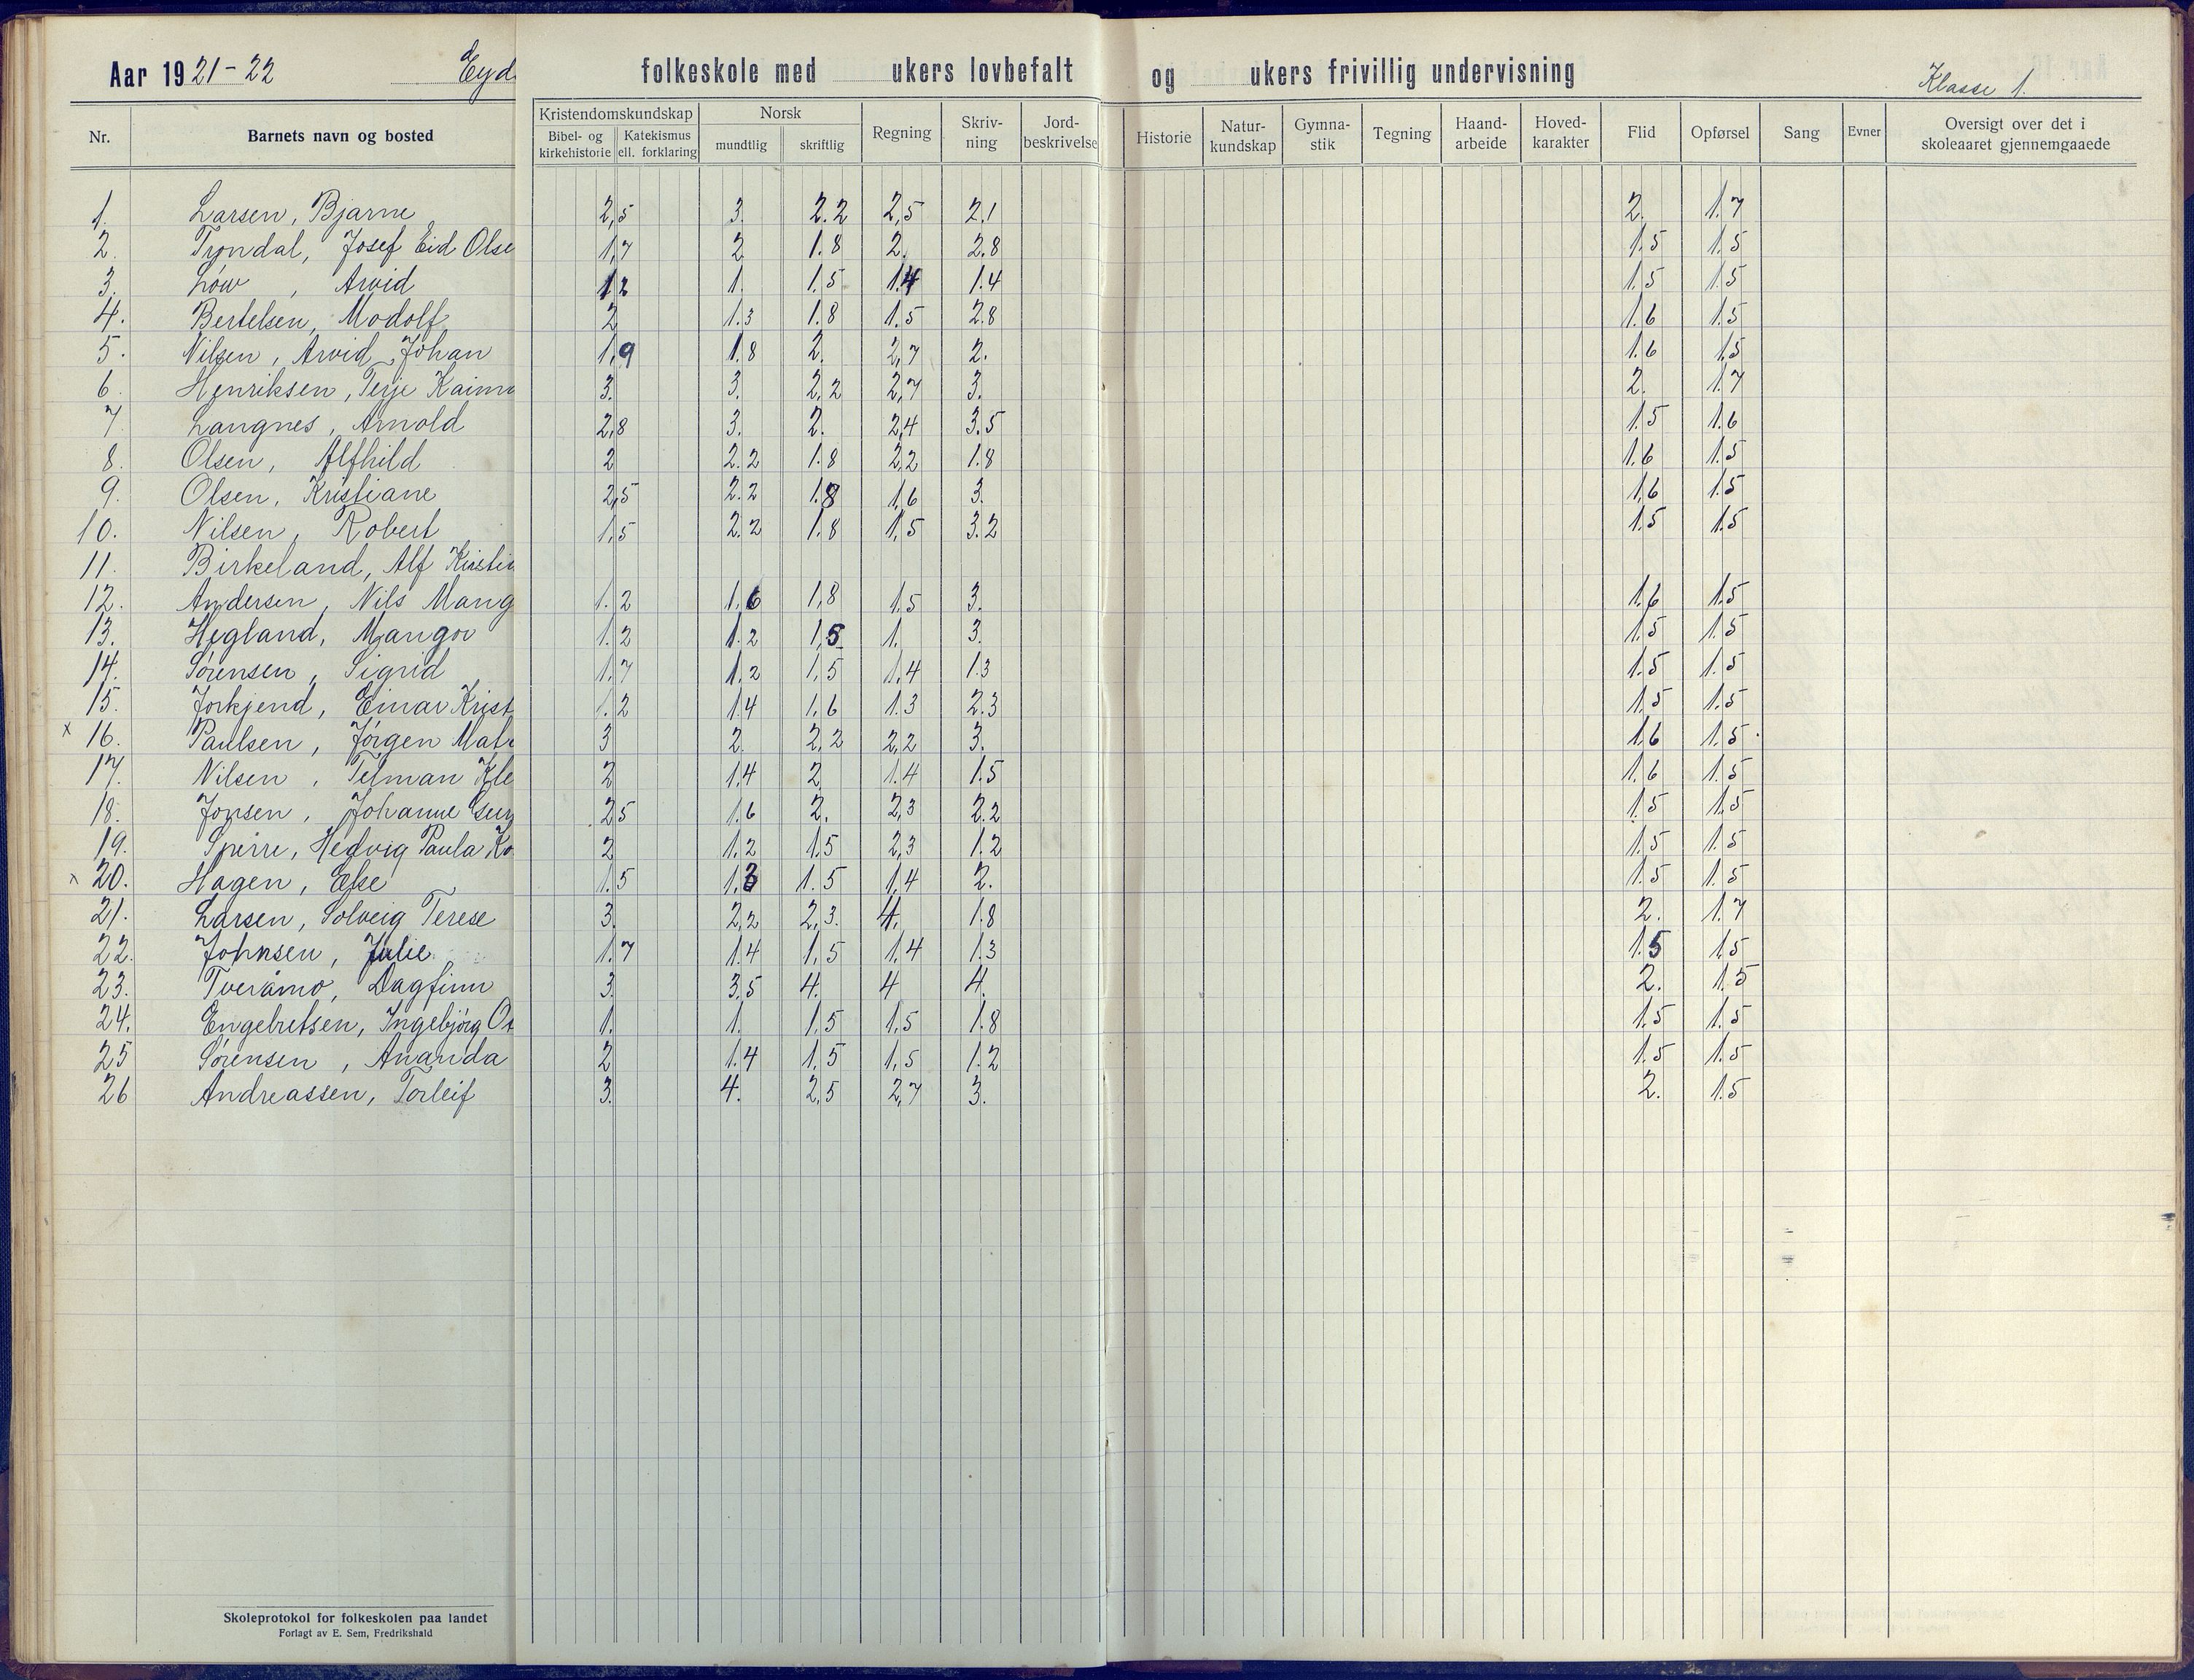 Aar 1921-22 Eyd folkeskole med ukers lovbefalt og ukers frivillig undervisning Klasse 1.
Nr. Barnets navn og bosted Kristendomskundskap Bibel- og kirkehistorie Katekismus ell. forklaring Norsk mundtlig skriftlig Regning Skriv-ning Jord-beskrivelse Historie Natur-kundskap Gymna-stik Tegning Haand-arbeide Hoved-karakter Flid Opførsel Sang Evner Oversigt over det i skoleaaret gjennemgaaede
1. Larsen, Bjarne 2,5 3. 2.2 2,5 2,1 2. 1.7
2. Tryndal, Josef Eid Olse 1,7 2 1.8 2. 2.8 1.5 1.5
3. Löw, Arvid 12 1. 1.5 1.4 1.4 1.5 1.5
4. Bertelsen, Modolf 2 1.3 1.8 1.5 2.8 1.6 1.5
5. Nilsen, Arvid Johan 1.9 1.8 2. 2,7 2. 1.6 1.5
6. Henriksen, Terje 3. 3. 2,2 2,7 3. 2. 1.7
7. Langnes, Arnold 2,8 3. 2. 2,4 3.5 1.5 1.6
8. Olsen, Alfhild 2 2.2 1.8 2,2 1.8 1.6 1.5
9. Olsen, Kristiane 2,5 2.2 1.8 1,6 3. 1,6 1.5
10. Nilsen, Robert 1,5 2.2 1.8 1,5 3.2 1.5 1.5
11. Birkeland, Alf Kristi
12. Andersen, Nils Mang 1.2 1.6 1,8 1.5 3. 1.6 1.5
13. Hegland, Mangor 1.2 1.2 1,5 1. 3. 1.5 1.5
14. Sörensen, Sigrid 1.7 1.2 1,5 1.4 1.3 1.5 1.5
15. Jorkjend, Einar Krist 1.2 1.4 1,6 1.3 2.3 1.5 1.5
x 16. Paulsen, Jörgen Mat 3 2. 2,2 2,2 3. 1.6 1.5
17. Nilsen, Telman Kle 2 1.4 2 1.4 1.5 1.6 1.5
18. Jonsen, Johanne 2,5 1.6 2. 2,3 2.2 1.5 1.5
19. Spirre, Hedvig Paula Ko 2 1.2 1.5 2,3 1.2 1.5 1.5
x 20. Hagen, Else 1.5 1.5 1,4 2. 1.5 1.5
21. Larsen, Solveig Terese 3. 2,2 2,3. 4. 1.8 2. 1.7
22. Johnsen, Julie 1.7 1.4 1,5 1,4 1.3 1.5 1.5
23. Tveråmo, Dagfinn 3. 3,5 4. 4 4. 2. 1.5
24. Engebretsen, Ingebjörg 1. 1. 1.5 1,5 1.8 1.5 1.5
25 Sörensen, Ananda 2 1.4 1,5 1,5 1.2 1.5 1.5
26 Andreassen, Torleif 3. 4. 2,5 2,7 3. 2. 1.5
Skoleprotokol for folkeskolen paa landet
Forlagt av E. Sem, Fredrikshald